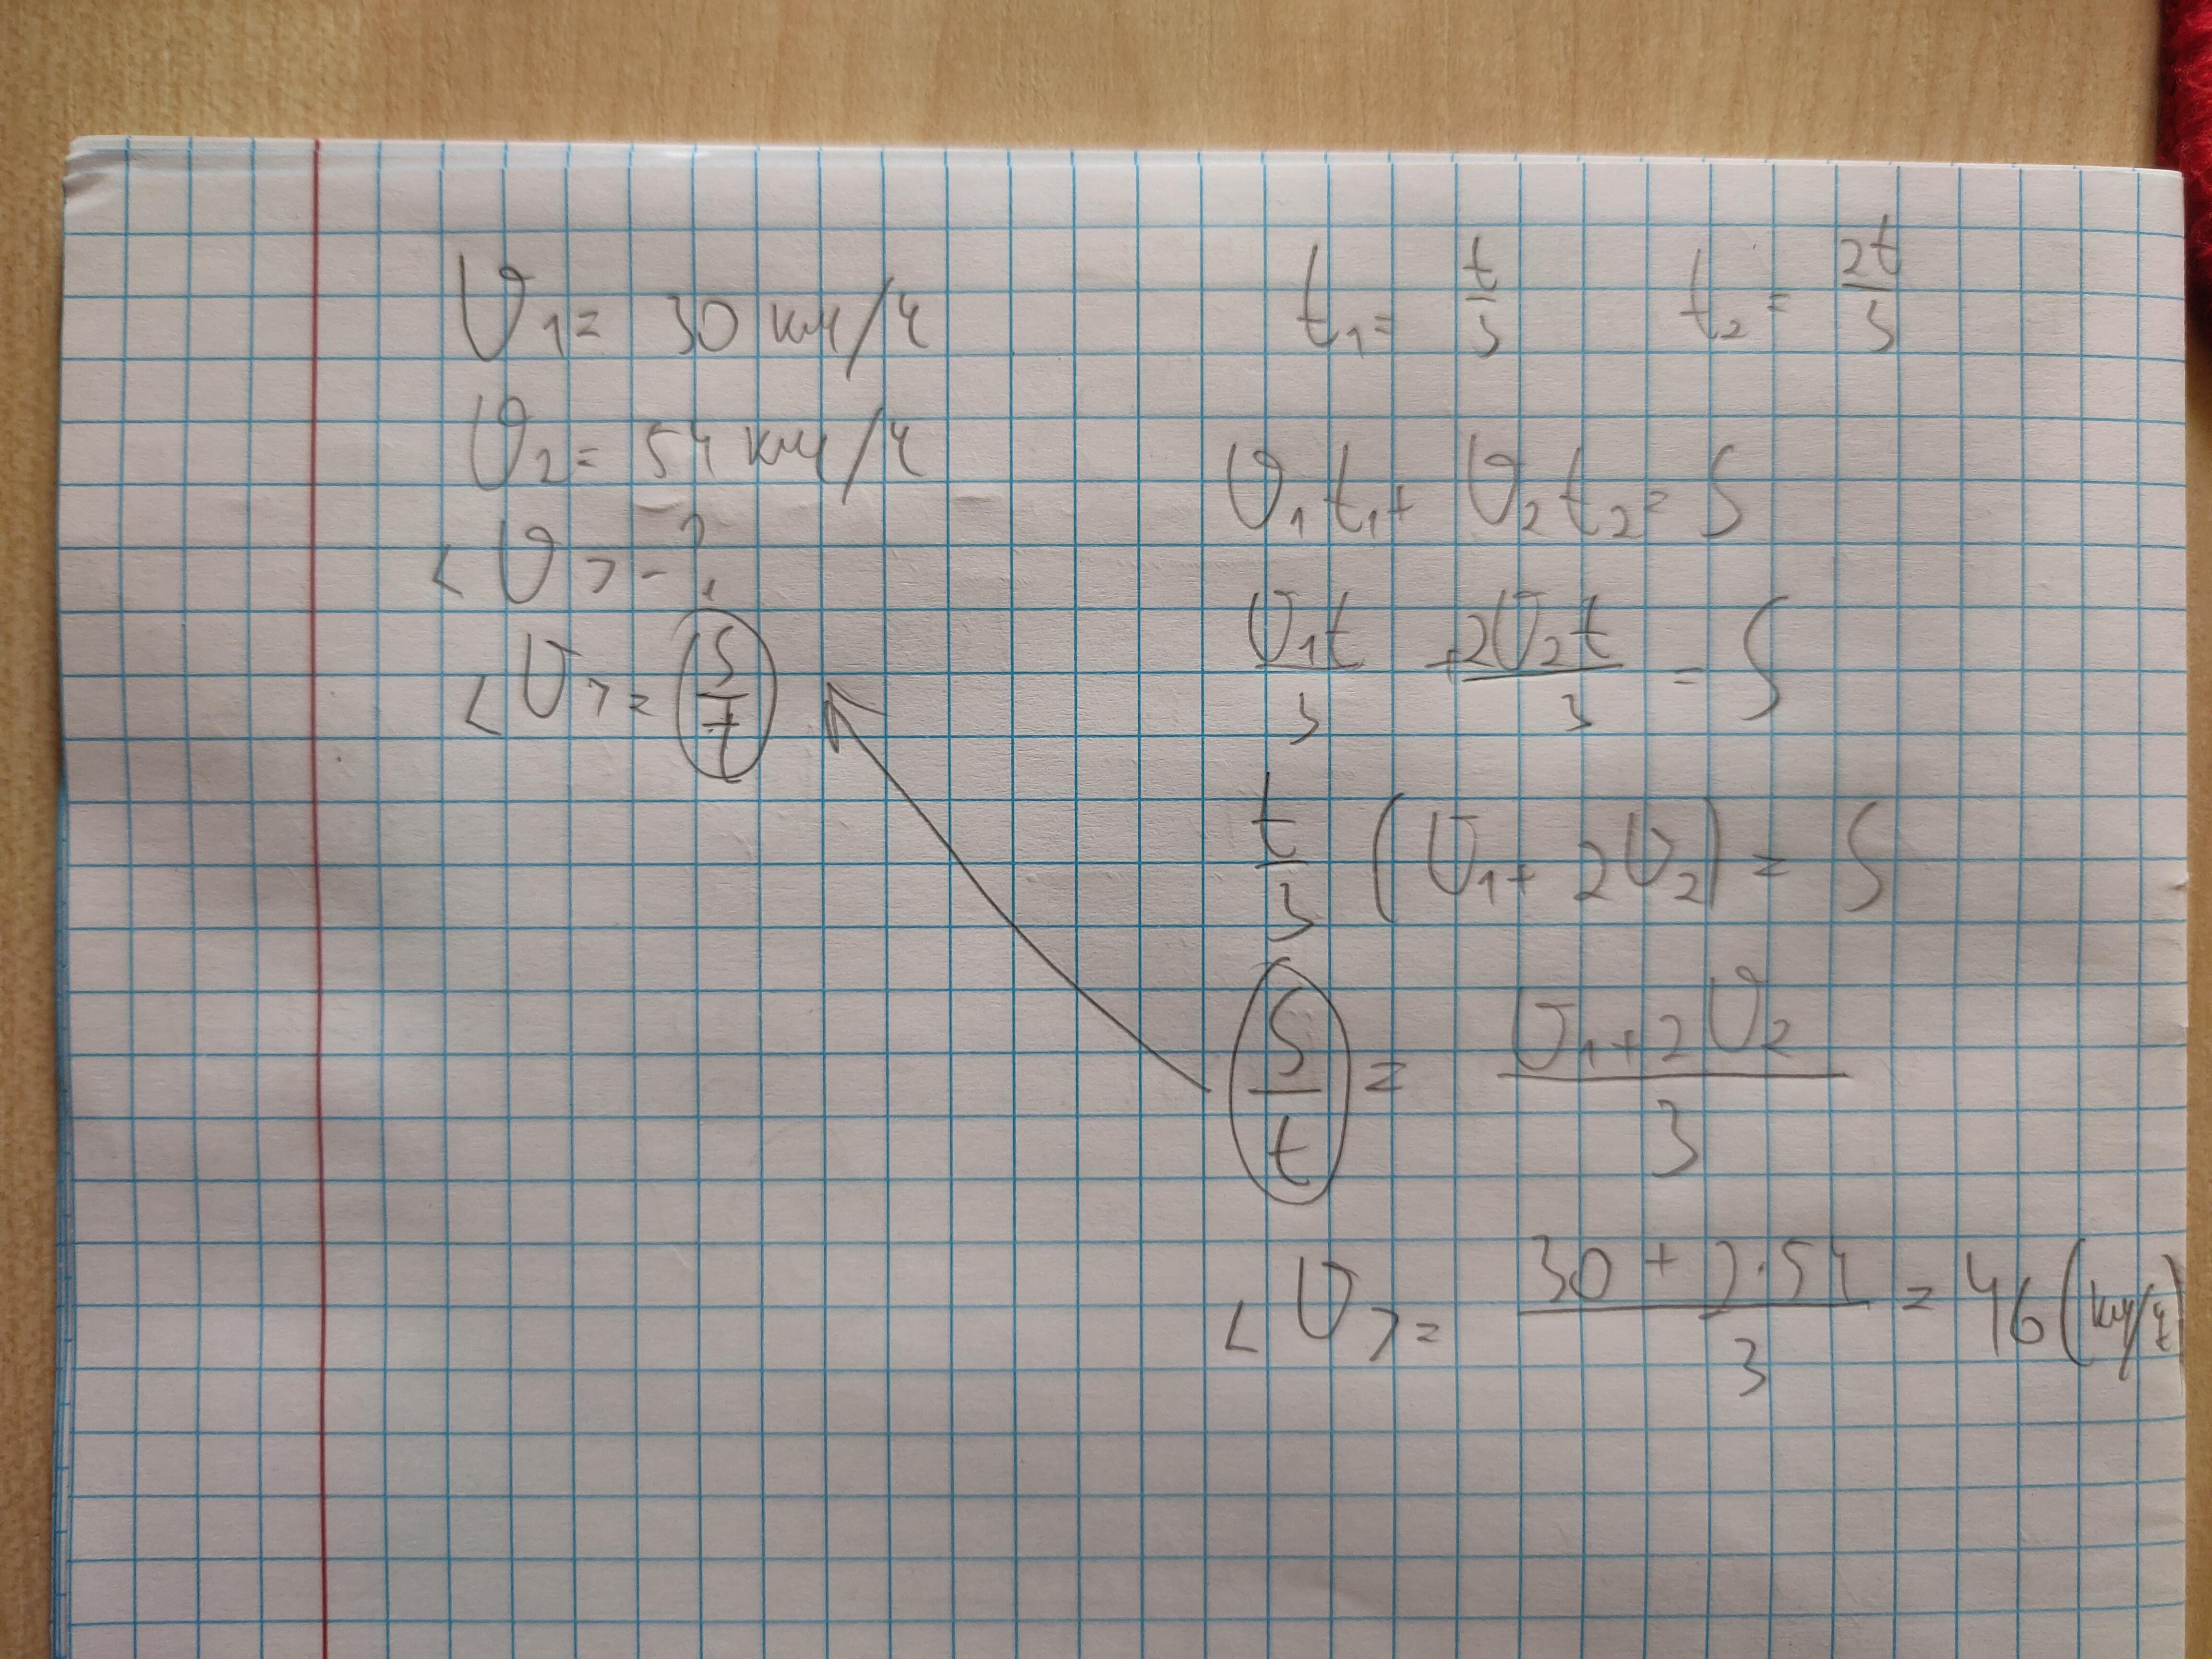 υ₁ = 30 км/ч
υ₂ = 54 км/ч
<υ> - ?
<υ> = S/t
t₁ = t/3 t₂ = 2t/3
υ₁t₁ + υ₂t₂ = S
υ₁t/3 + 2υ₂t/3 = S
t/3 (υ₁ + 2υ₂) = S
S/t = (υ₁ + 2υ₂)/3
<υ> = (30 + 2·54)/3 = 46 (км/ч)